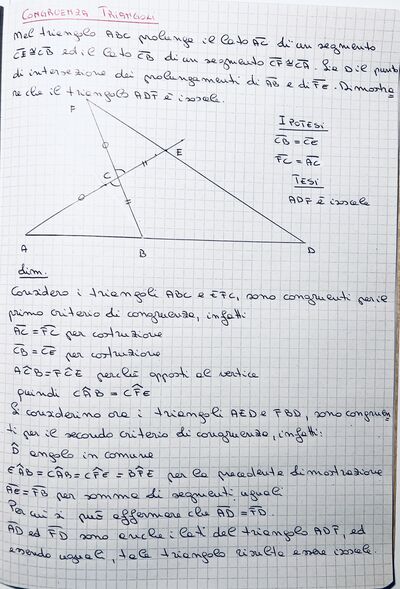 CONGRUENZA TRIANGOLI
Nel triangolo ABC prolunga il lato AC di un segmento
CE≅CB ed il lato CB di un segmento CF≅CA. Sia D il punto
di intersezione dei prolungamenti di AB e di FE. Dimostra
re che il triangolo ADF è isoscele.
F
IPOTESI
CB = CE
FC = AC
TESI
ADF è isoscele
E
C
A
B
D
dim.
Considero i triangoli ABC e EFC, sono congruenti per il
primo criterio di congruenza, infatti
AC = FC per costruzione
CB = CE per costruzione
AĈB = FĈE perché opposti al vertice
quindi CÂB = CF̂E
Si considerino ora i triangoli AED e FBD, sono congruen
ti per il secondo criterio di congruenza, infatti:
D̂ angolo in comune
EÂB = CÂB = CF̂E = BF̂E per la precedente dimostrazione
AE = FB per somma di segmenti uguali
Per cui si può affermare che AD = FD.
AD ed FD sono anche i lati del triangolo ADF, ed
essendo uguali, tale triangolo risulta essere isoscele.